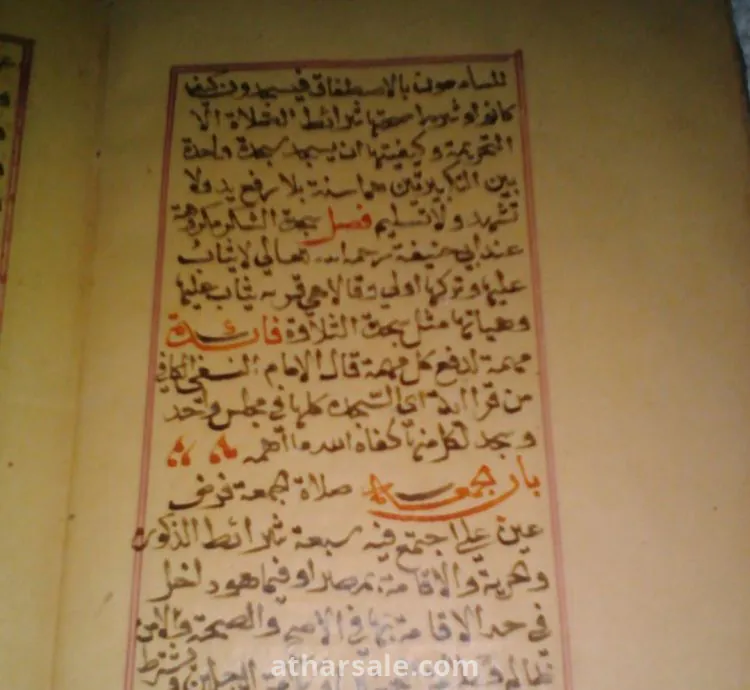 للسامعون بالاصطفاف فيسجدون كيف
كانوا وشرط صحتها شرائط الصلاة الا
التحريمة وكيفيتها ان يسجد سجدة واحدة
بين التكبيرتين هما سنة بلا رفع يد ولا
تشهد ولا تسليم فصل سجدة الشكر مكروهة
عند ابي حنيفة رحمه الله تعالي لا يثاب
عليها وتركها اولي وقالا هي قربة يثاب عليها
وهياتها مثل سجدة التلاوة فائدة
مهمة لدفع كل مهمة قال الامام النسفي الكافي
من قرا آي السجدة كلها في مجلس واحد
وسجد لكل منها كفاه الله ما اهمه
باب الجمعة صلاة الجمعة فرض
عين علي اجتمع فيه سبعة شرائط الذكورة
والحرية والاقامة بمصر او فيما هو داخل
في حد الاقامة بها في الاصح والصحة والامن
atharsale.com